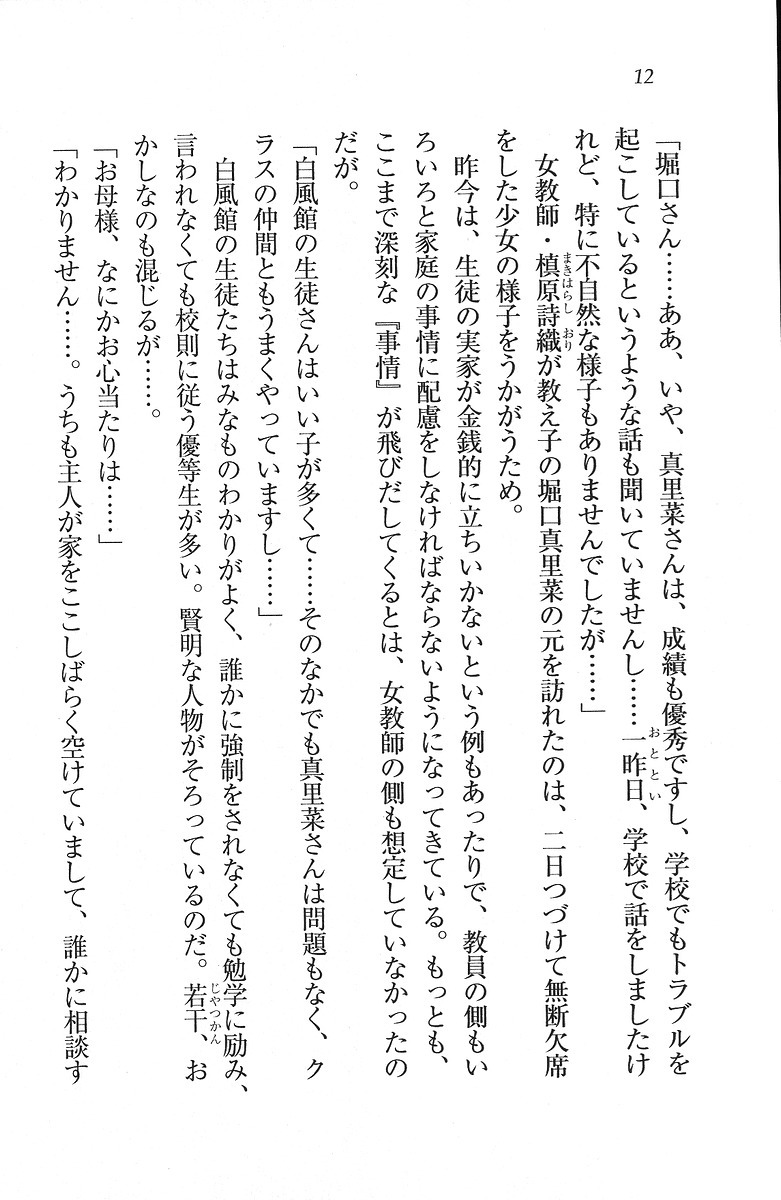 12
「堀口さん……ああ、いや、真里菜さんは、成績も優秀ですし、学校でもトラブルを
起こしているというような話も聞いていませんし……一昨日、学校で話をしましたけ
れど、特に不自然な様子もありませんでしたが……」
女教師・槙原詩織が教え子の堀口真里菜の元を訪れたのは、二日つづけて無断欠席
をした少女の様子をうかがうため。
昨今は、生徒の実家が金銭的に立ちいかないという例もあったりで、教員の側もい
ろいろと家庭の事情に配慮をしなければならないようになってきている。もっとも、
ここまで深刻な『事情』が飛びだしてくるとは、女教師の側も想定していなかったの
だが。
「白風館の生徒さんはいい子が多くて……そのなかでも真里菜さんは問題もなく、ク
ラスの仲間ともうまくやっていますし……」
白風館の生徒たちはみなものわかりがよく、誰かに強制をされなくても勉学に励み、
言われなくても校則に従う優等生が多い。賢明な人物がそろっているのだ。若干、お
かしなのも混じるが……。
「お母様、なにかお心当たりは……」
「わかりません……。うちも主人が家をここしばらく空けていまして、誰かに相談す